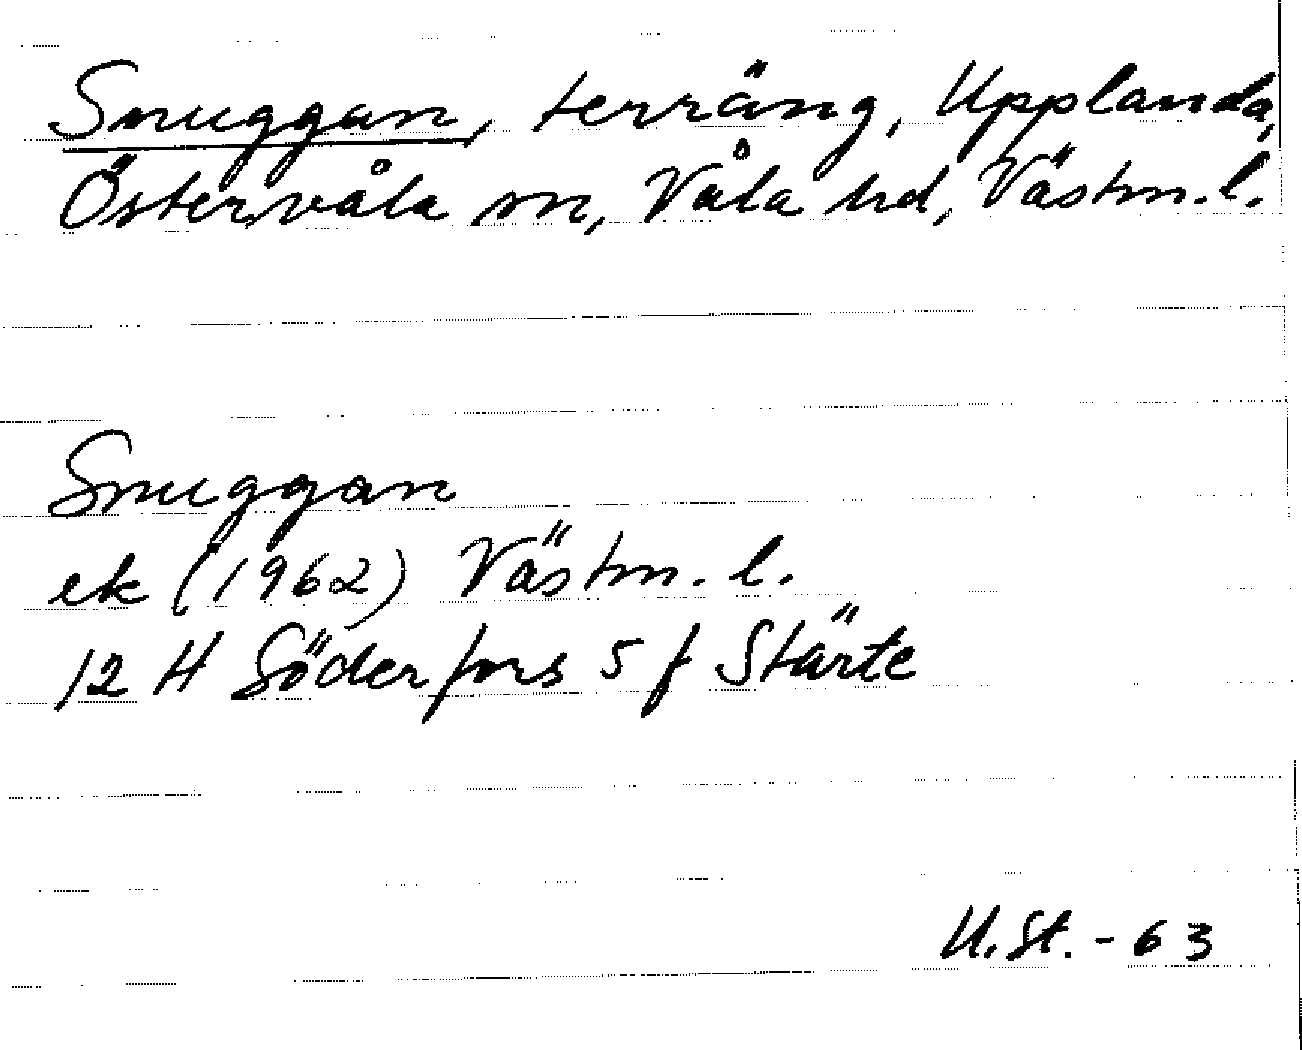 Snuggan, terräng, Upplanda,
Östervåla sn, Våla hd, Västm.l.
Snuggan
ek (1962) Västm. l.
12 H Söderfors 5 f Stärte
U.St. - 63